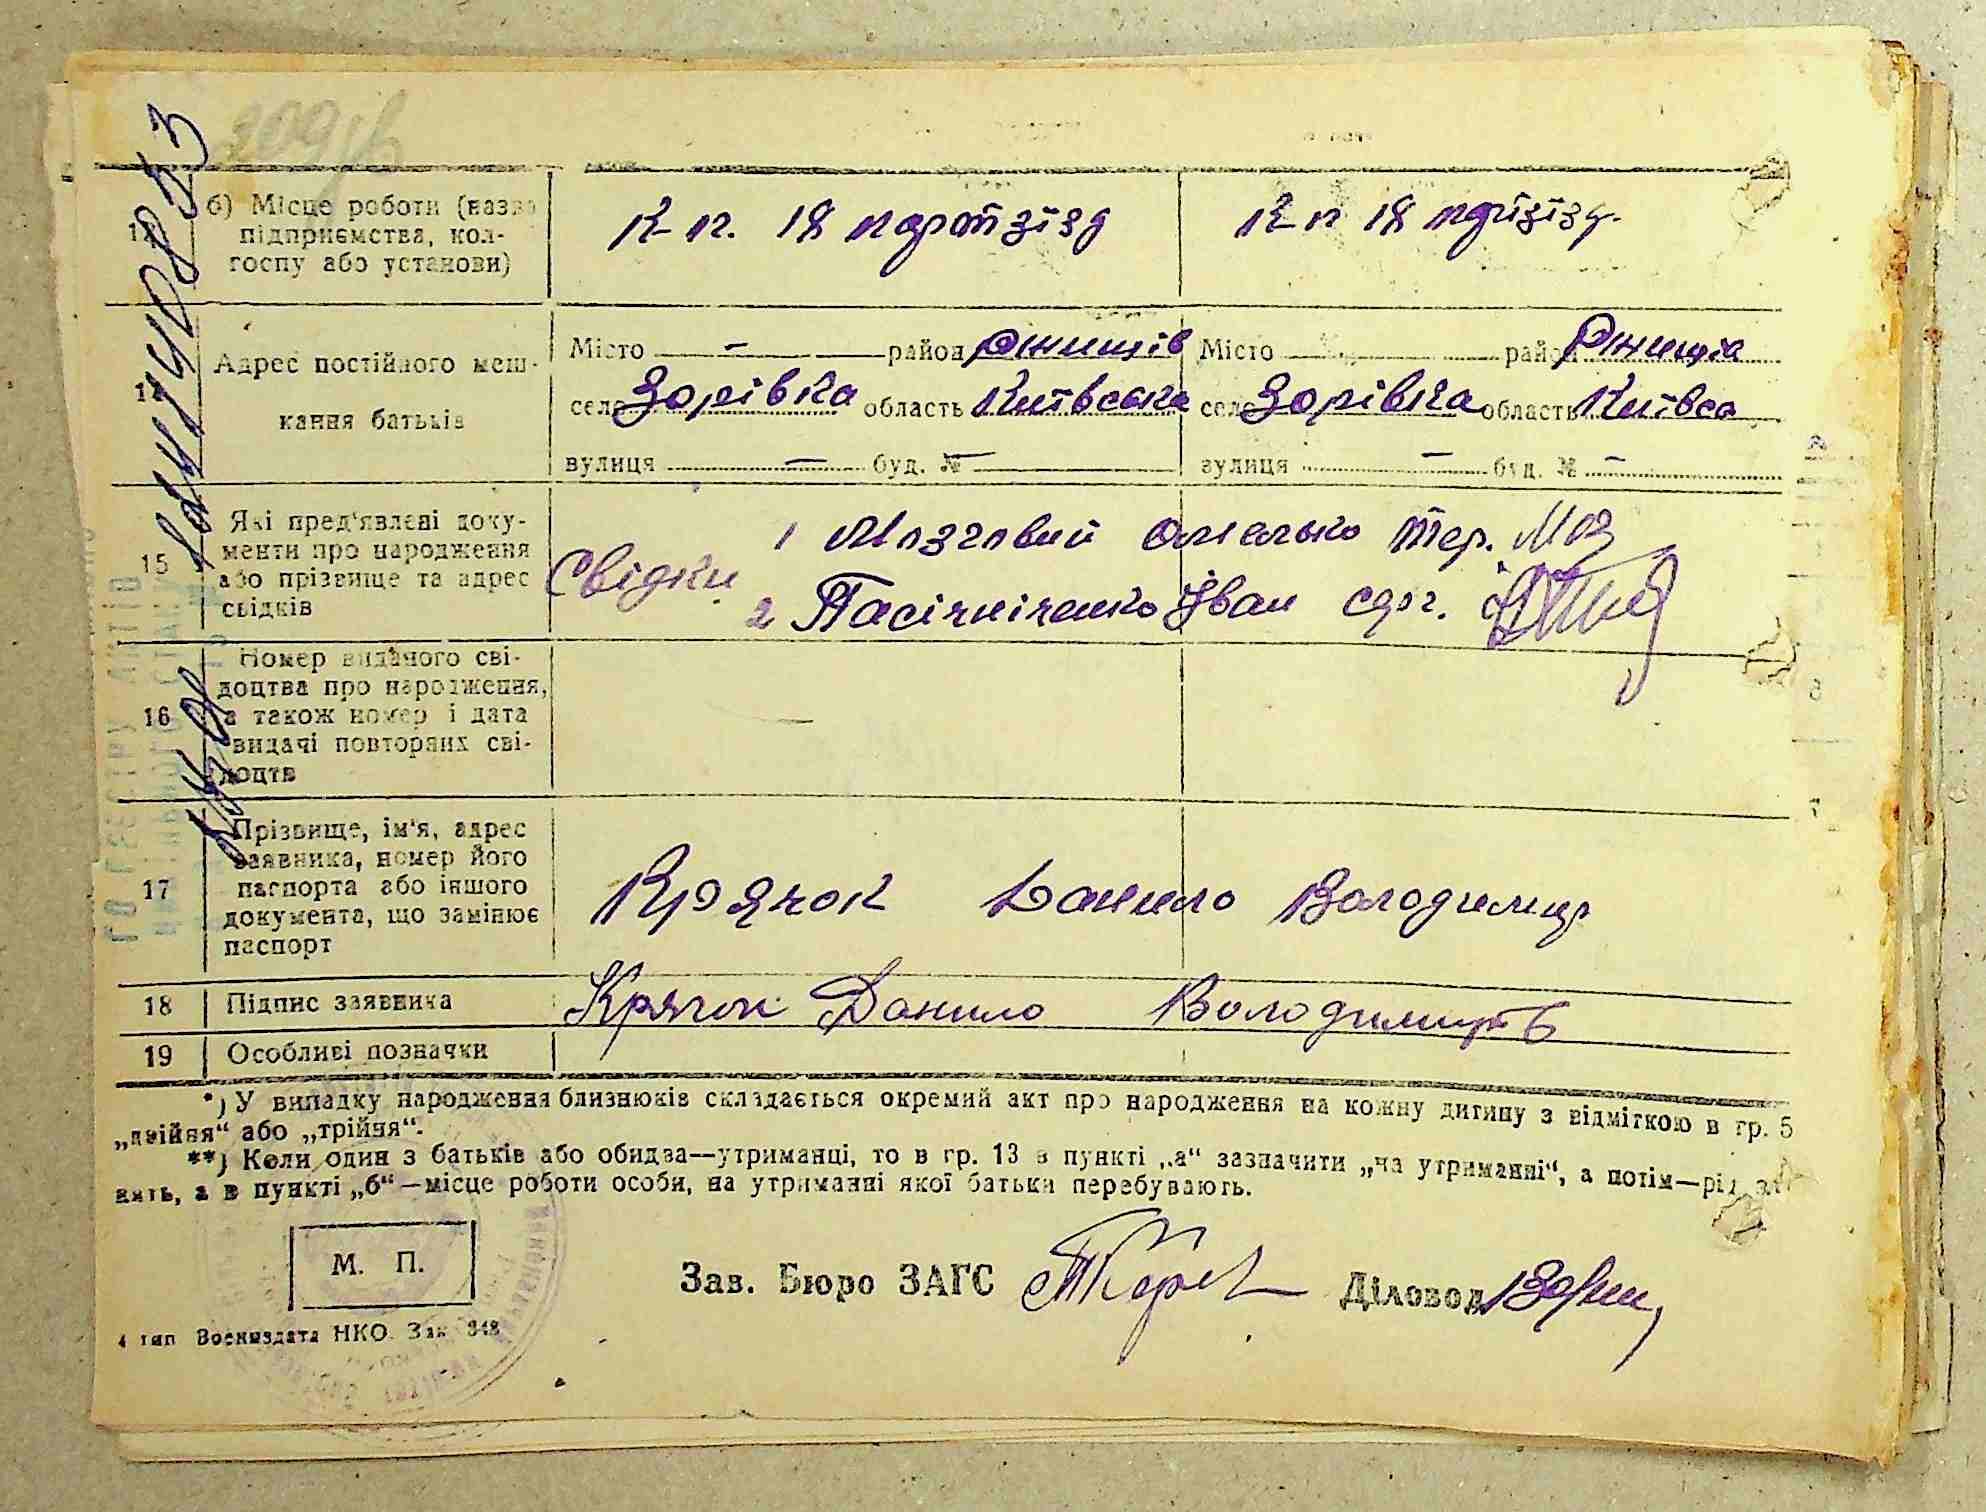 б) Місце роботи (назва підприємства, кол-госпу або установи)
К п. 18 партзїзд
К п 18 партзїзд.
14 Адрес постійного меш-
кання батьків
Місто — район Ржищів
село Зорівка область Київська
вулиця — буд. № —
Місто район Ржищів
село Зорівка область Київсь
вулиця — буд. № —
15 Які пред'явлені доку-
менти про народження
або прізвище та адрес
свідків
Свідки 1 Мозговий Омелько Тер.
2 Пасічніченко Іван сэрг.
16 Номер виданого сві-
доцтва про народження,
а також номер і дата
видачі повторних сві-
доцтв
17 Прізвище, ім'я, адрес
заявника, номер його
паспорта або іншого
документа, що замінює
паспорт
Крячок Данило Володимир
18 Підпис заявника
Крячок Данило Володимиров
19 Особливі позначки
*) У випадку народження близнюків складається окремий акт про народження на кожну дитину з відміткою в гр. 5
„двійня“ або „трійня“.
**) Коли один з батьків або обидва—утриманці, то в гр. 13 в пункті „а“ зазначити „на утриманні“, а потім—рід за-
нять, а в пункті „б“—місце роботи особи, на утриманні якої батьки перебувають.
М. П.
Зав. Бюро ЗАГС
Діловод
4 тип Воениздата НКО. Зак. 348